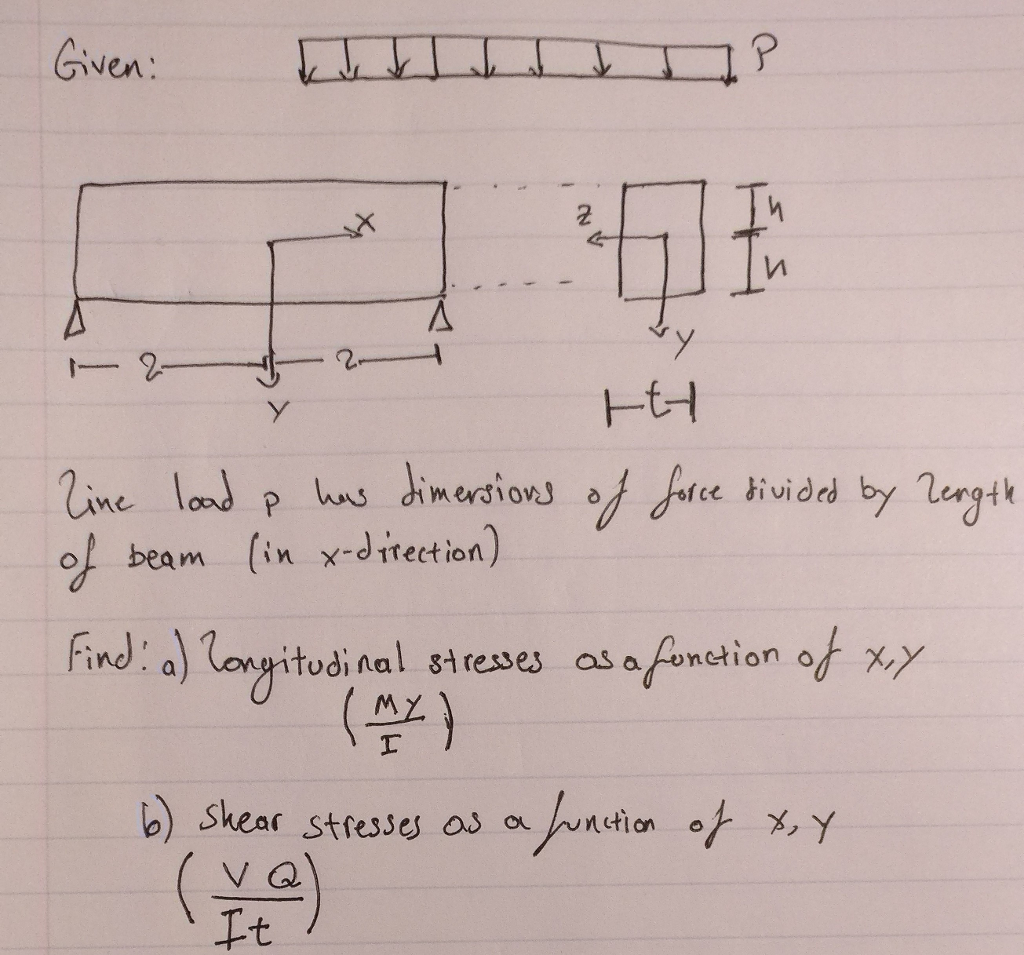 Given:
P
x
z
h
h
y
l
l
y
t
line load p has dimensions of force divided by length
of beam (in x-direction)
Find: a) longitudinal stresses as a function of x,y
(My/I)
b) shear stresses as a function of x, y
(VQ/It)